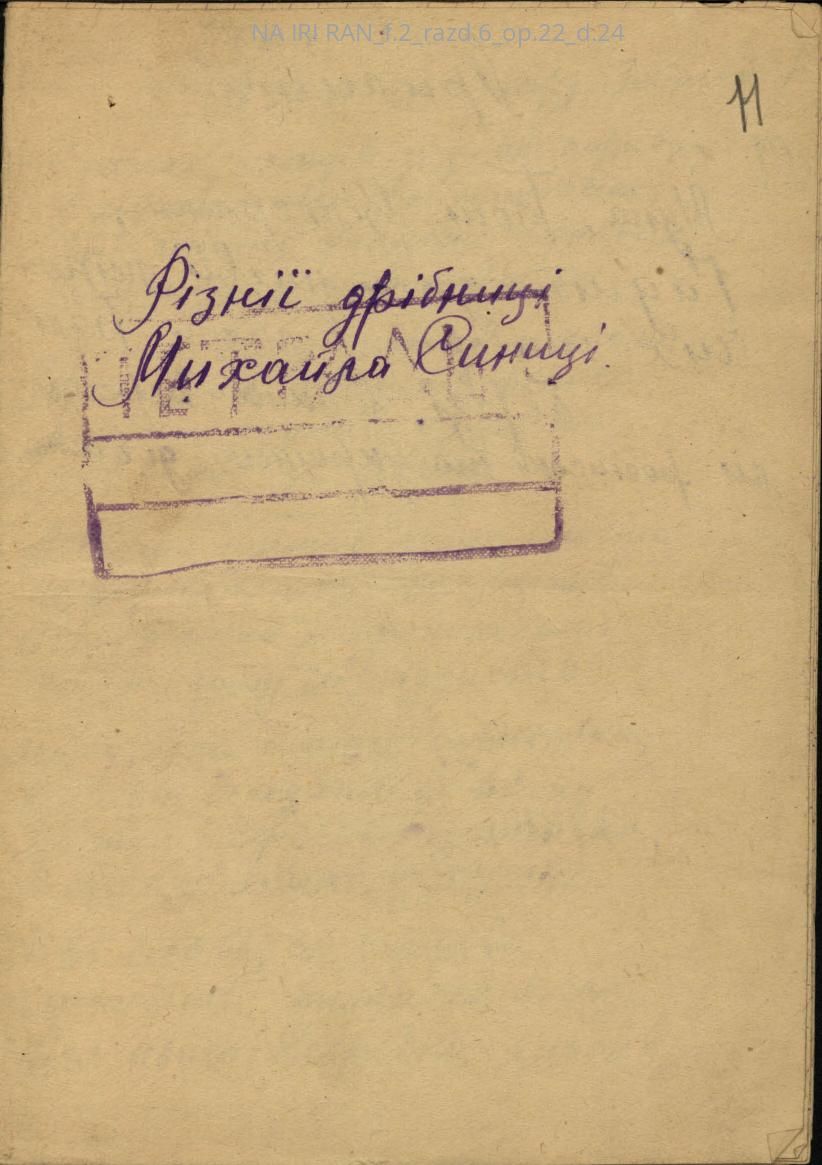 NA IRI RAN_f.2_razd.6_op.22_d.24
11
Різнії дрібниці
Михайла Синиці